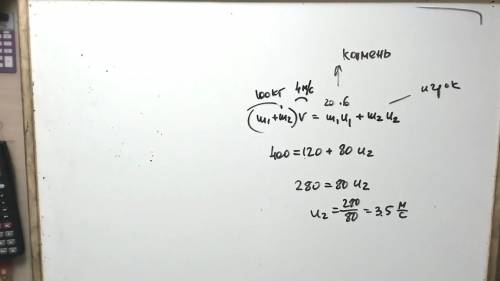 камень
100кг 4м/с 20·6 игрок
(m₁+m₂)V = m₁u₁ + m₂u₂
400 = 120 + 80 u₂
280 = 80 u₂
u₂ = 280/80 = 3.5 м/с